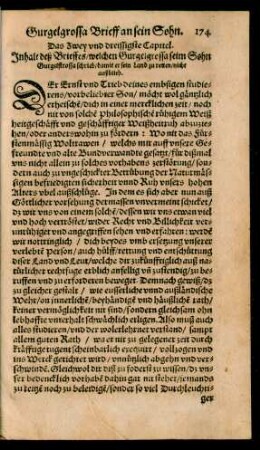 Gurgelgrossa Brieff an sein Sohn. 174
Das Zwey vnd dreissigste Capitel.
Inhalt deß Brieffes/welchen Gurgelgrossa seim Sohn
Gurgelstrossa schrieb/damit er sein Land zu retten/nicht
außblieb.
DEr Ernst vnd Trieb deines embsigen studie-
rens/vorbeliebter Son/ möcht wol gäntzlich
erheischē/dich in einer mercklichen zeit / noch
nit von solchē Philosophischē rühigem Weiß
heitgeschäfft vnd geschäfftiger Weißheitruh abzuste-
hen oder anderswohin zu fördern : Wo nit das Für-
stenmässig Woltrawen / welchs mit auff vnsere Ge-
freundte vnd alte Bundverwandte gesetzt/für dißmal
vns nicht allein zu solches vorhabens zerstörung/son-
dern auch zu vngeschickter Verrübung der Naturmäs-
sigsten befridigten sicherheit vnnd Ruh vnsers hohen
Alters vbel auffschlüge. In dem es sich aber nun auß
Götlicher vorsehung dermassen vnvermeint schicket/
dz wir vns von einem solchē/dessen wir vns etwan viel
vnd hoch vertröst/wider Recht vnd Billichkeit ver-
unrühiget vnd angegriffen sehen vnd erfahren: werdē
wir nottringlich / dich beydes vmb ersetzung vnserer
verlebte Person / auch hülff/rettung vnd entschüttung
diser Land vnd Leut/welche dir zukünfftiglich auß na-
türlicher rechtfuge erblich anfellig vñ zustendig/zu be-
ruffen vnd zu erfordern beweget. Demnach gewiß/dz
zu gleicher gestalt / wie eusserliche vnnd außländische
Wehr/on innerlichē/beyhändigē vnd häußlichē rath/
keiner vermöglichkeit nit sind/sondern gleichsam ohn
lobhaffte vnterhalt schwächlich erligen. Also muß auch
alles studieren/vnd der wolerlehrnet verstand/ sampt
allem guten Rath / wo er nit zu gelegener zeit durch
kräfftige tugent scheinbarlich exequirt / vollzogen vnd
ins Werck gerichtet wird /vnnützlich abgehn vnd ver-
schwindē. Gleichwol dir diß zu foderst zu wissen/dz vn-
ser bedencklich vorhabē dahin gar nit stehet/jemands
zu reitzē noch zu beleidigē/sonder so viel Durchleuch-
gez